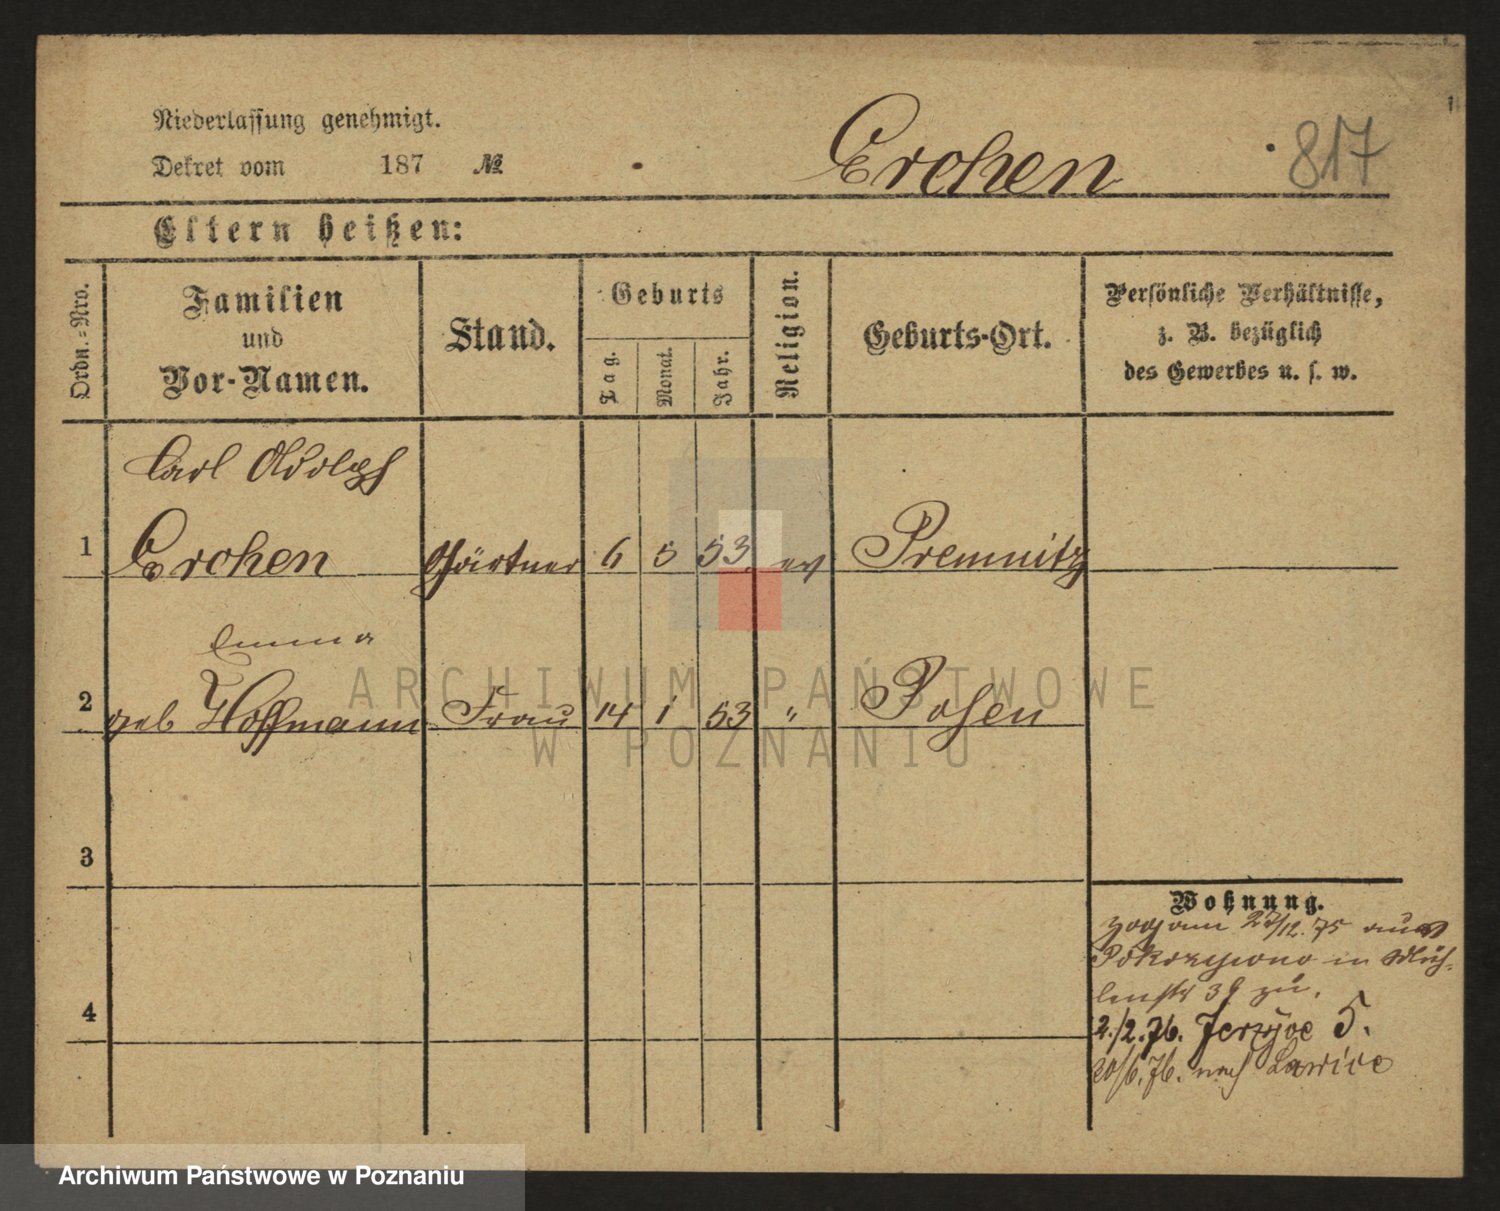 Niederlassung genehmigt.
Dekret vom 187 №
Erohen
817
Eltern heißen:
Ordn.-Nro.
Familien und Vor-Namen.
Stand.
Geburts
Tag.
Monat.
Jahr.
Religion.
Geburts-Ort.
Persönliche Verhältnisse,
z. B. bezüglich
des Gewerbes u. s. w.
Carl Adolph
1 Erohen Gärtner 6 5 53 ev Premnitz
Emma
2 geb Hoffmann Frau 14 1 53 " Posen
3
Wohnung.
zog am 27/12.75 aus
Pokrzywno in Müh-
lenstr 39 zu.
4
2./2.76. Jerzyce 5.
20/6.76. nach Lawice
ARCHIWUM PAŃSTWOWE
W POZNANIU
Archiwum Państwowe w Poznaniu